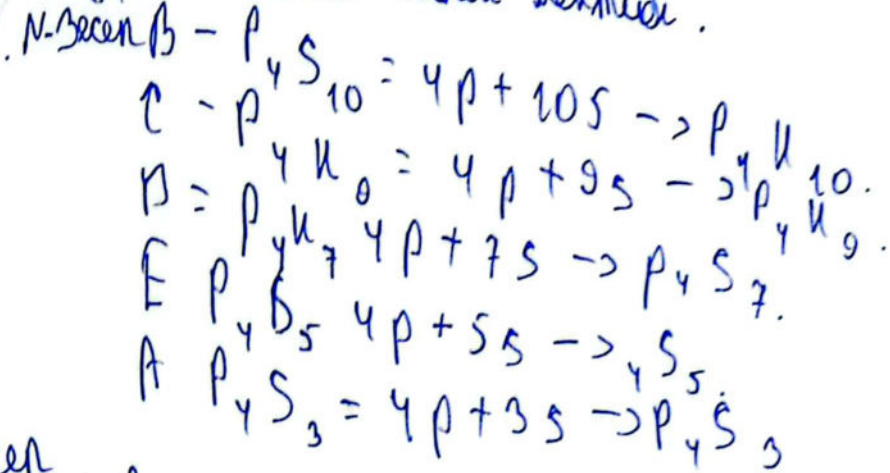 N-Эесеп B - P₄S₁₀ = 4p + 10s -> P₄И₁₀.
C - P₄И₉ = 4p + 9s -> P₄И₉.
D = P₄И₇ 4p + 7s -> P₄S₇.
E P₄S₅ 4p + 5s -> ₄S₅.
A P₄S₃ = 4p + 3s -> P₄S₃
еп